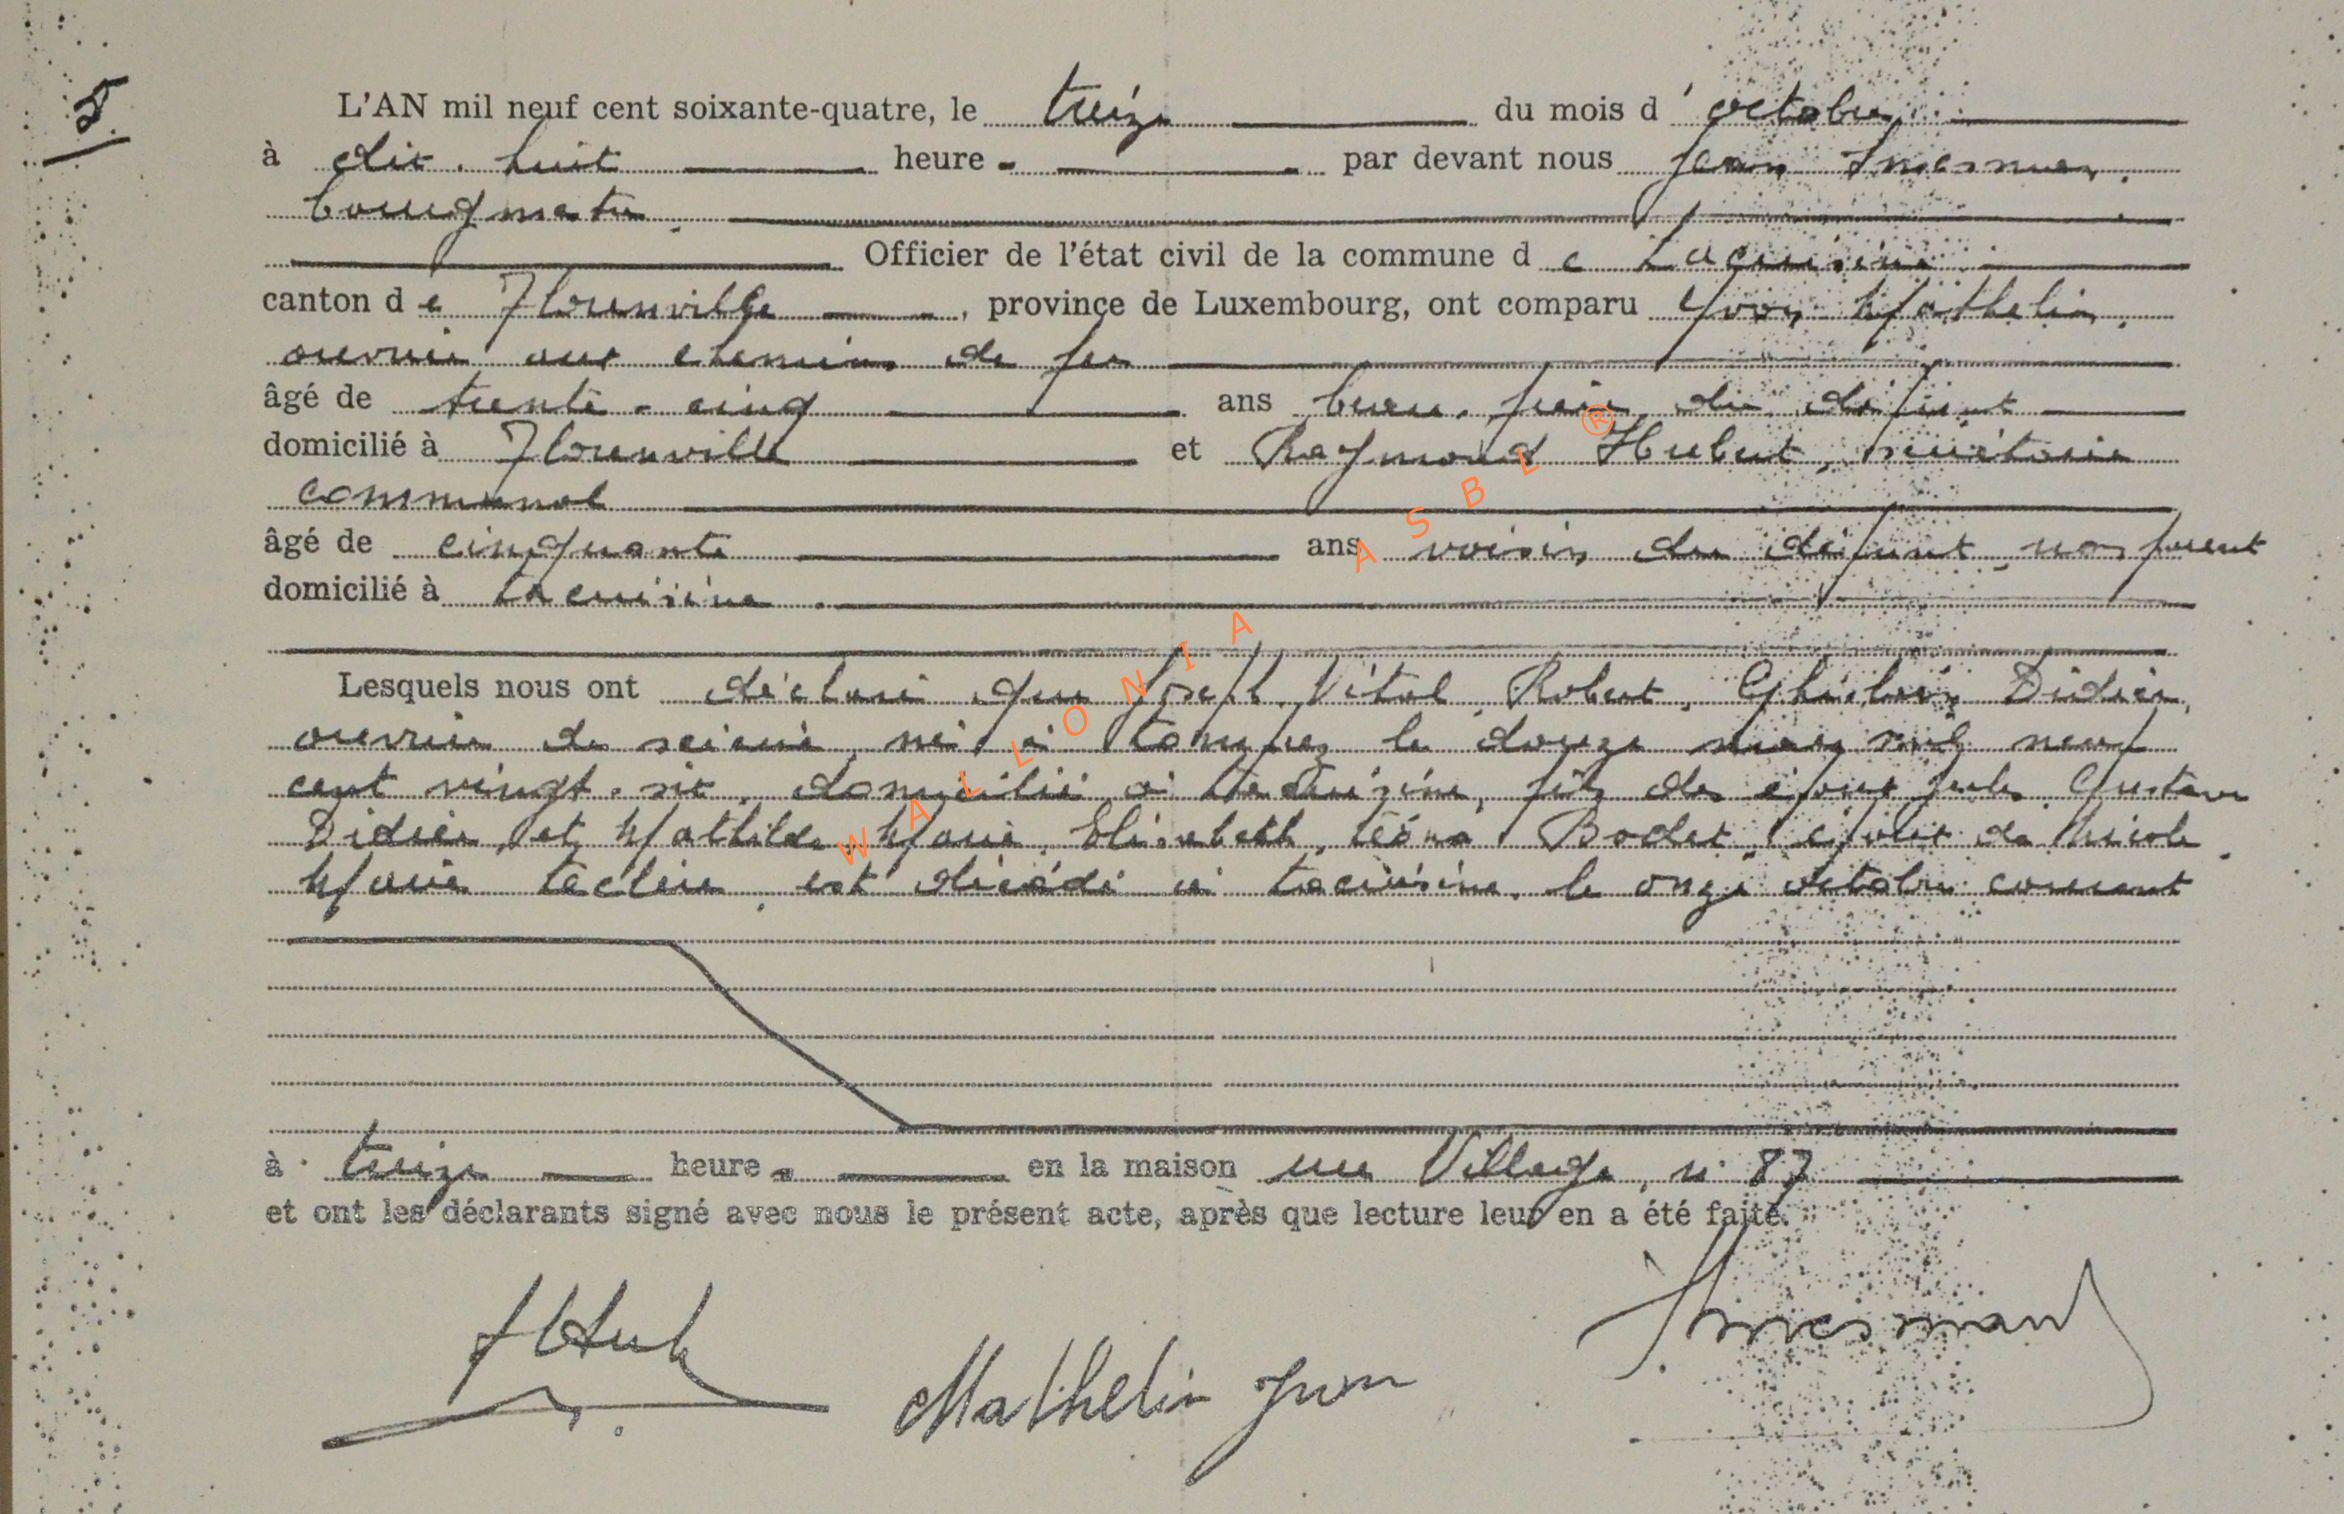 5
L'AN mil neuf cent soixante-quatre, le treize du mois d'octobre
à dix-huit heures par devant nous Jean
bourgmestre
Officier de l'état civil de la commune de Lacuisine
canton de Florenville, province de Luxembourg, ont comparu Yvon Mathelin,
ouvrier aux chemins de fer
âgé de trente-cinq ans beau-frère du défunt
domicilié à Florenville et Raymond Hubert, secrétaire
communal
âgé de cinquante ans voisin du défunt, non parent
domicilié à Lacuisine.
Lesquels nous ont déclaré que Joseph, Vital, Robert, Ghislain Didier,
ouvrier de scierie, né à le douze mars mil neuf
cent vingt-six, domicilié à Lacuisine, fils des époux Jules, Gustave
Didier, et Mathilde, Marie, Elisabeth, Léona Bodet, époux de Nicole
Marie Leclère, est décédé à Lacuisine, le onze octobre courant
à treize heures en la maison rue Village, n° 87
et ont les déclarants signé avec nous le présent acte, après que lecture leur en a été faite.
Mathelin Yvon
WALLONIA ASBL ®